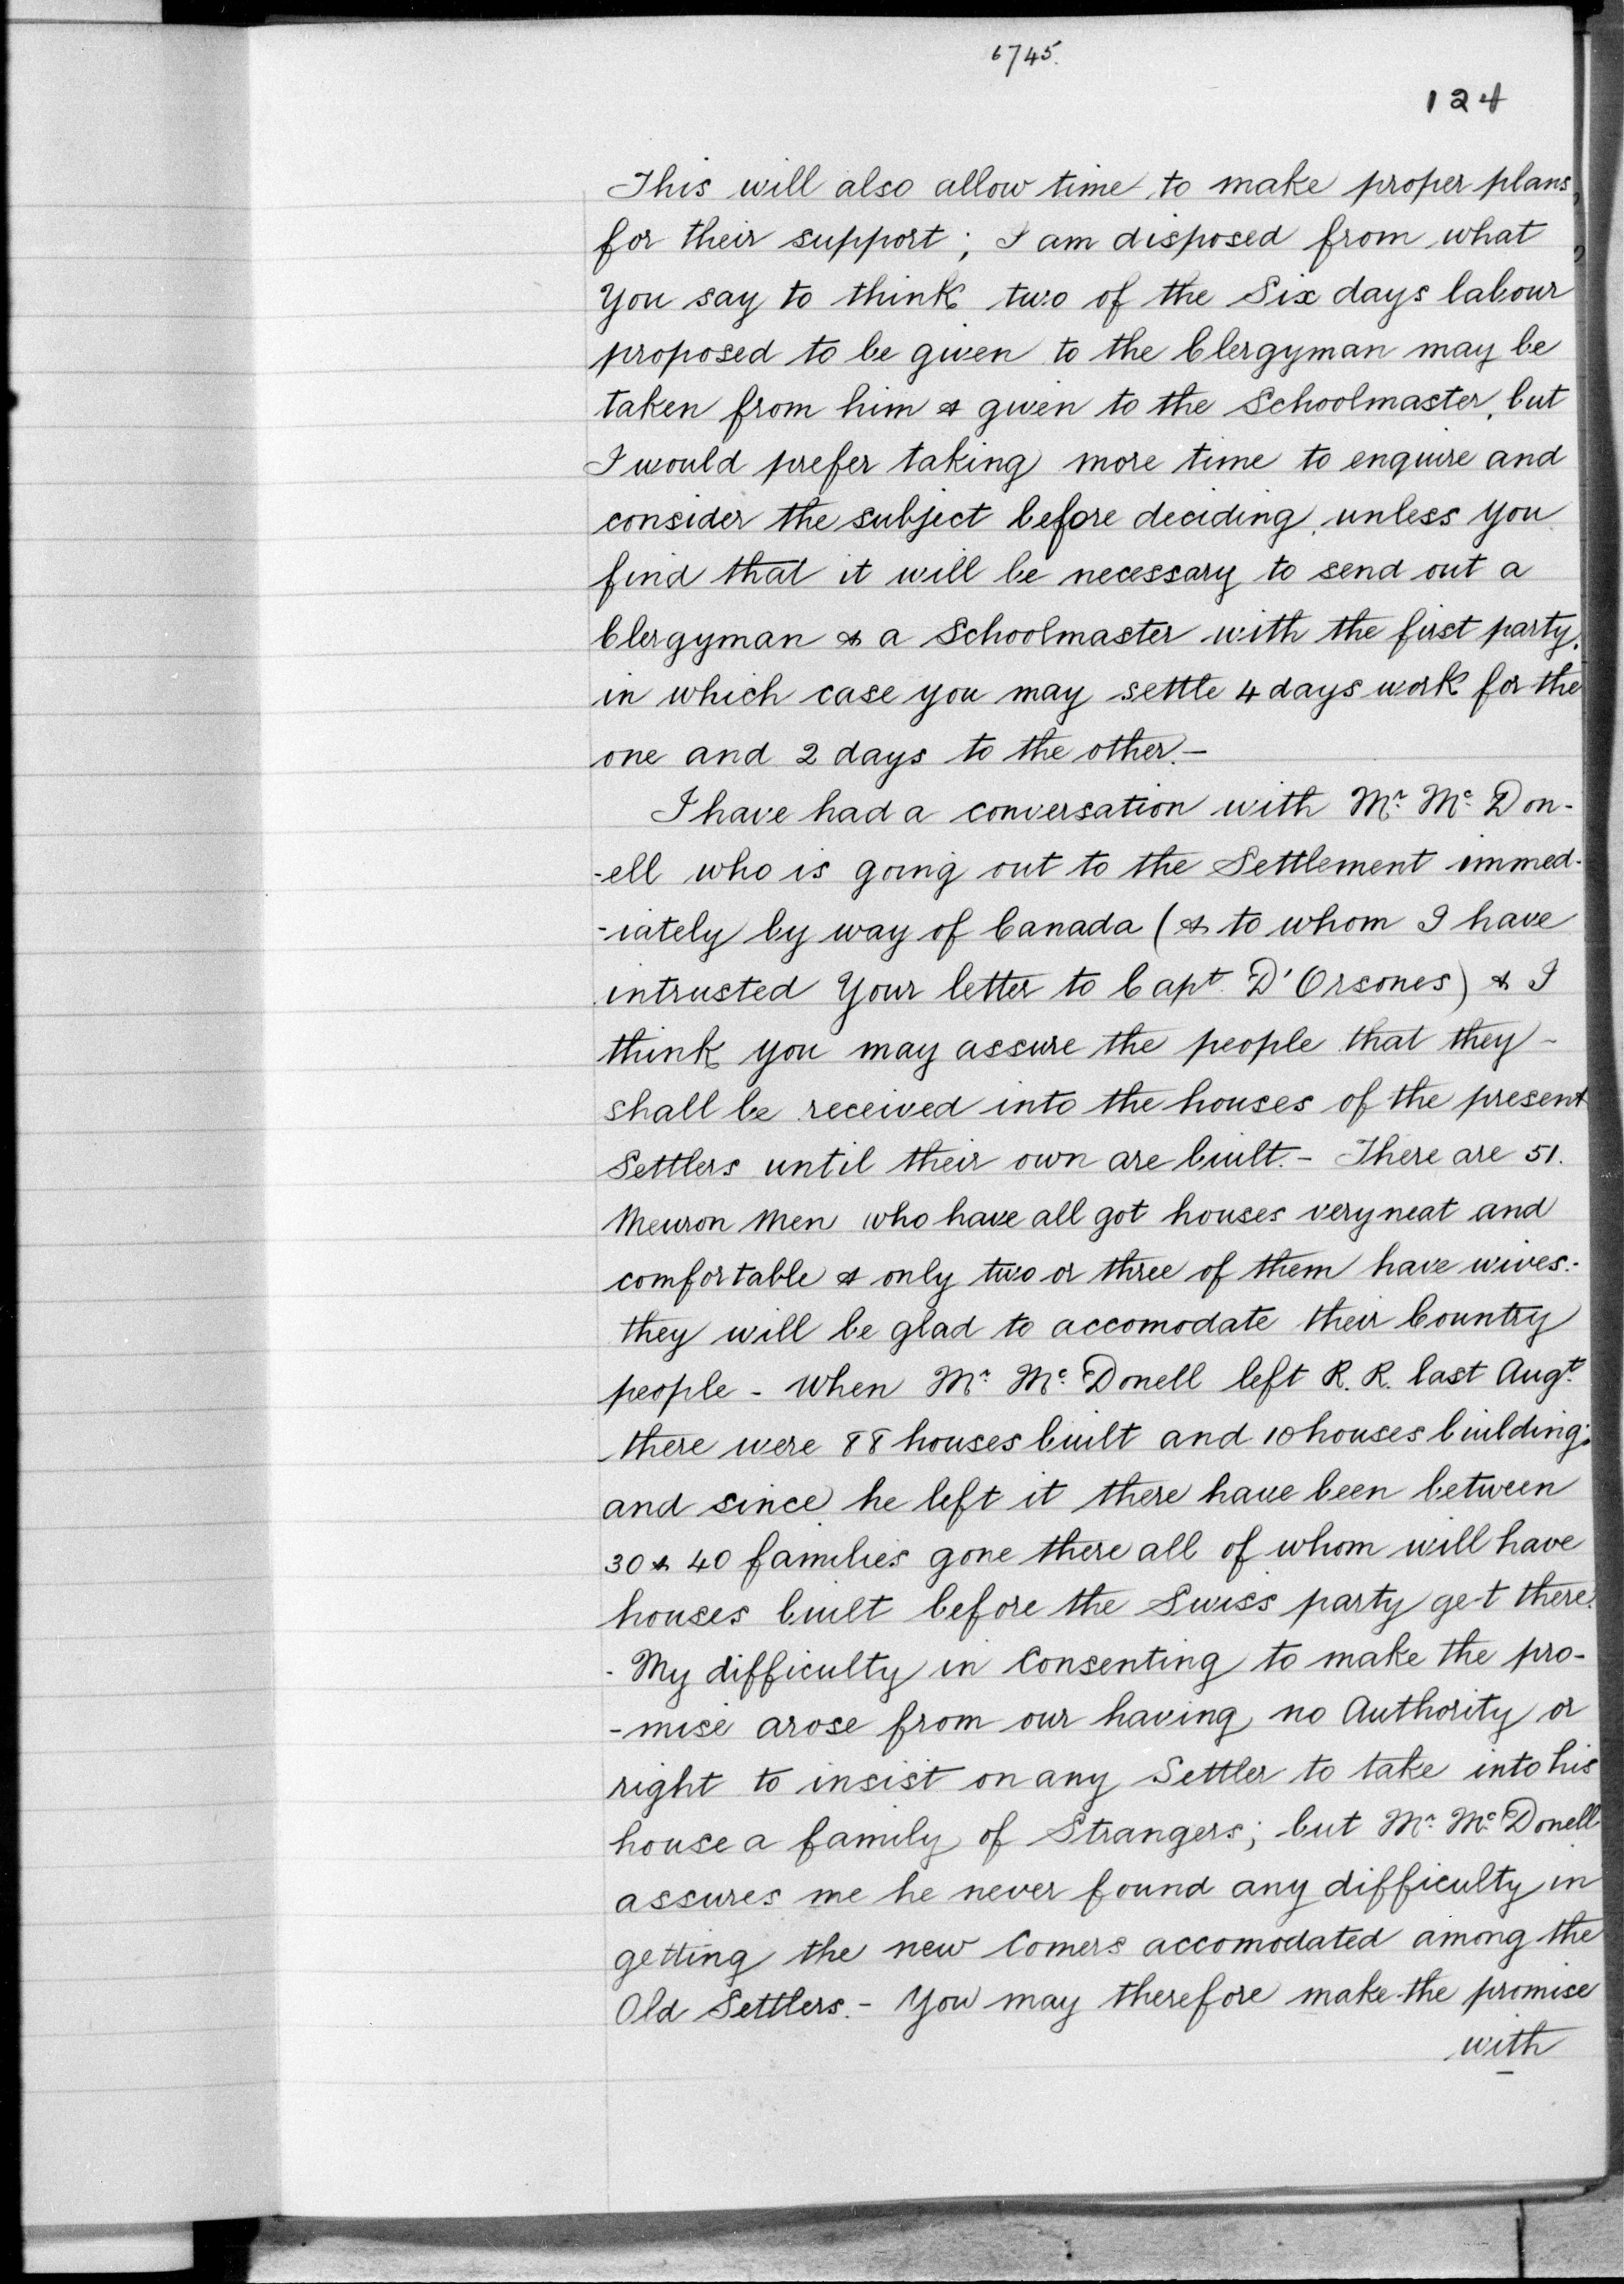 6745.
124
This will also allow time to make proper plans
for their support; I am disposed from what
You say to think two of the Six days labour
proposed to be given to the Clergyman may be
taken from him & given to the Schoolmaster, but
I would prefer taking more time to enquire and
consider the subject before deciding, unless you
find that it will be necessary to send out a
Clergyman & a Schoolmaster with the first party,
in which case you may settle 4 days work for the
one and 2 days to the other.-
I have had a conversation with Mr. Mc. Don-
-ell who is going out to the Settlement immed-
-iately by way of Canada (& to whom I have
intrusted Your letter to Capt. D'Orsones) & I
think you may assure the people that they -
shall be received into the houses of the present
Settlers until their own are built. - There are 51.
Meuron Men who have all got houses very neat and
comfortable & only two or three of them have wives.-
they will be glad to accomodate their Country
people - When Mr. Mc. Donell left R. R. last Augt.
there were 88 houses built and 10 houses building;
and since he left it there have been between
30 & 40 families gone there all of whom will have
houses built before the Swiss party get there.
- My difficulty in Consenting to make the pro-
-mise arose from our having no Authority or
right to insist on any Settler to take into his
house a family of Strangers; but Mr. Mc. Donell
assures me he never found any difficulty in
getting the new Comers accomodated among the
Old Settlers. - You may therefore make the promise
with